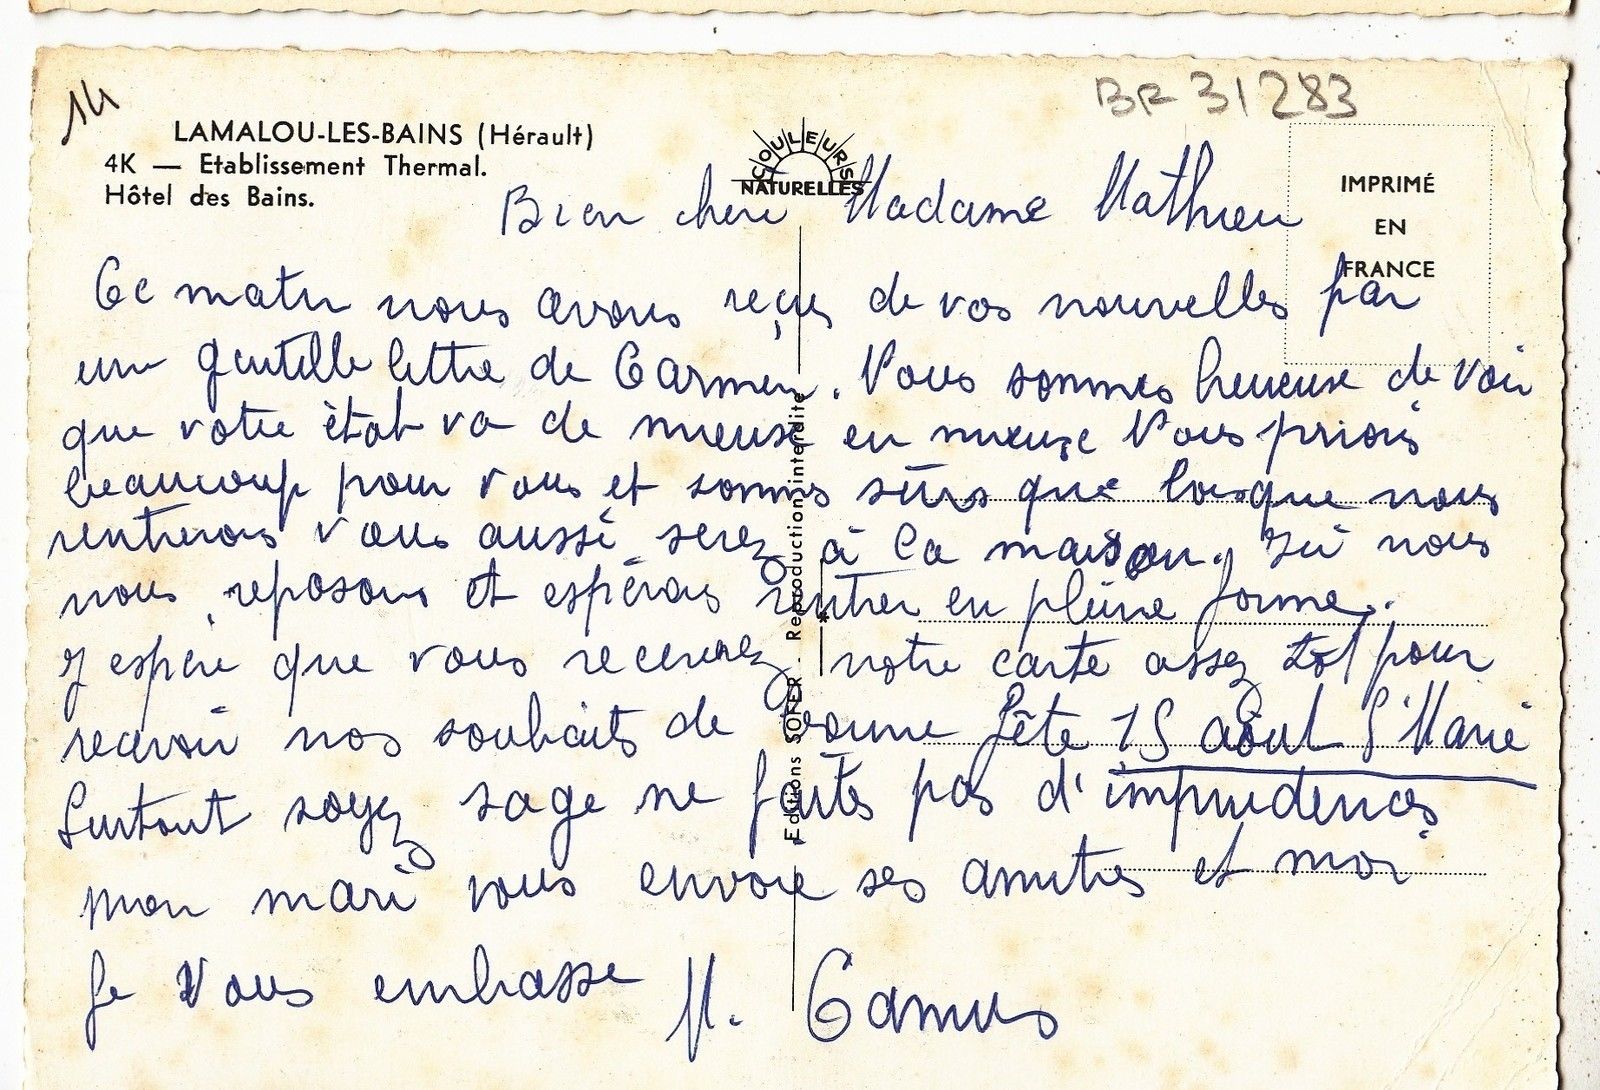 14
BF 31283
LAMALOU-LES-BAINS (Hérault)
4K — Etablissement Thermal.
Hôtel des Bains.
COULEURS
NATURELLES
IMPRIMÉ
EN
FRANCE
Editions SOFER - Reproduction interdite
Bien chère Madame Mathieu
Ce matin nous avons reçus de vos nouvelles par
une gentille lettre de Carmen. Nous sommes heureuse de voir
que votre état va de mieux en mieux Nous prions
beaucoup pour vous et sommes sûrs que lorsque nous
rentrerons vous aussi serez à la maison. Ici nous
nous reposons et espérons rentrer en pleine forme.
J espère que vous recevrez notre carte assez tôt pour
recevoir nos souhaits de bonne fête 15 août S' Marie
Surtout soyez sage ne faites pas d'imprudences
mon mari vous envoie ses amitiés et moi
Je Vous embrasse M. Camus